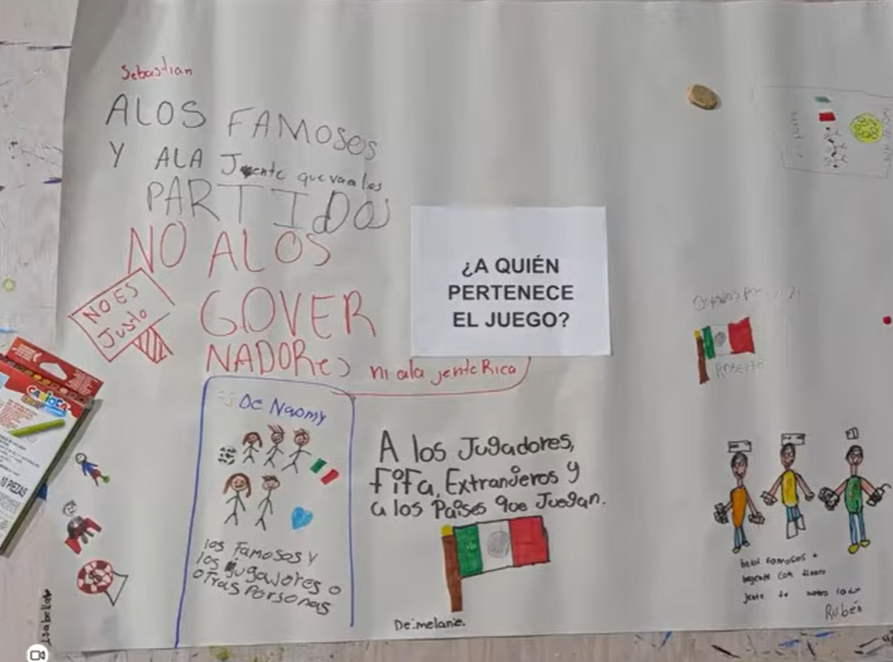 Sebastian
ALOS FAMOSOS
Y ALA Jente que va a los
PARTIDOS
NO ALOS
GOVER
NADORES ni ala jente Rica
NO ES
Justo
¿A QUIÉN
PERTENECE
EL JUEGO?
De Naomy
los famosos y
los jugadores o
otras Personas
A los Jugadores,
Fifa, Extranjeros y
a los Países que Juegan.
De: melanie.
Roberto
famosos
jente
Rubén
Isabella
CARIOCA